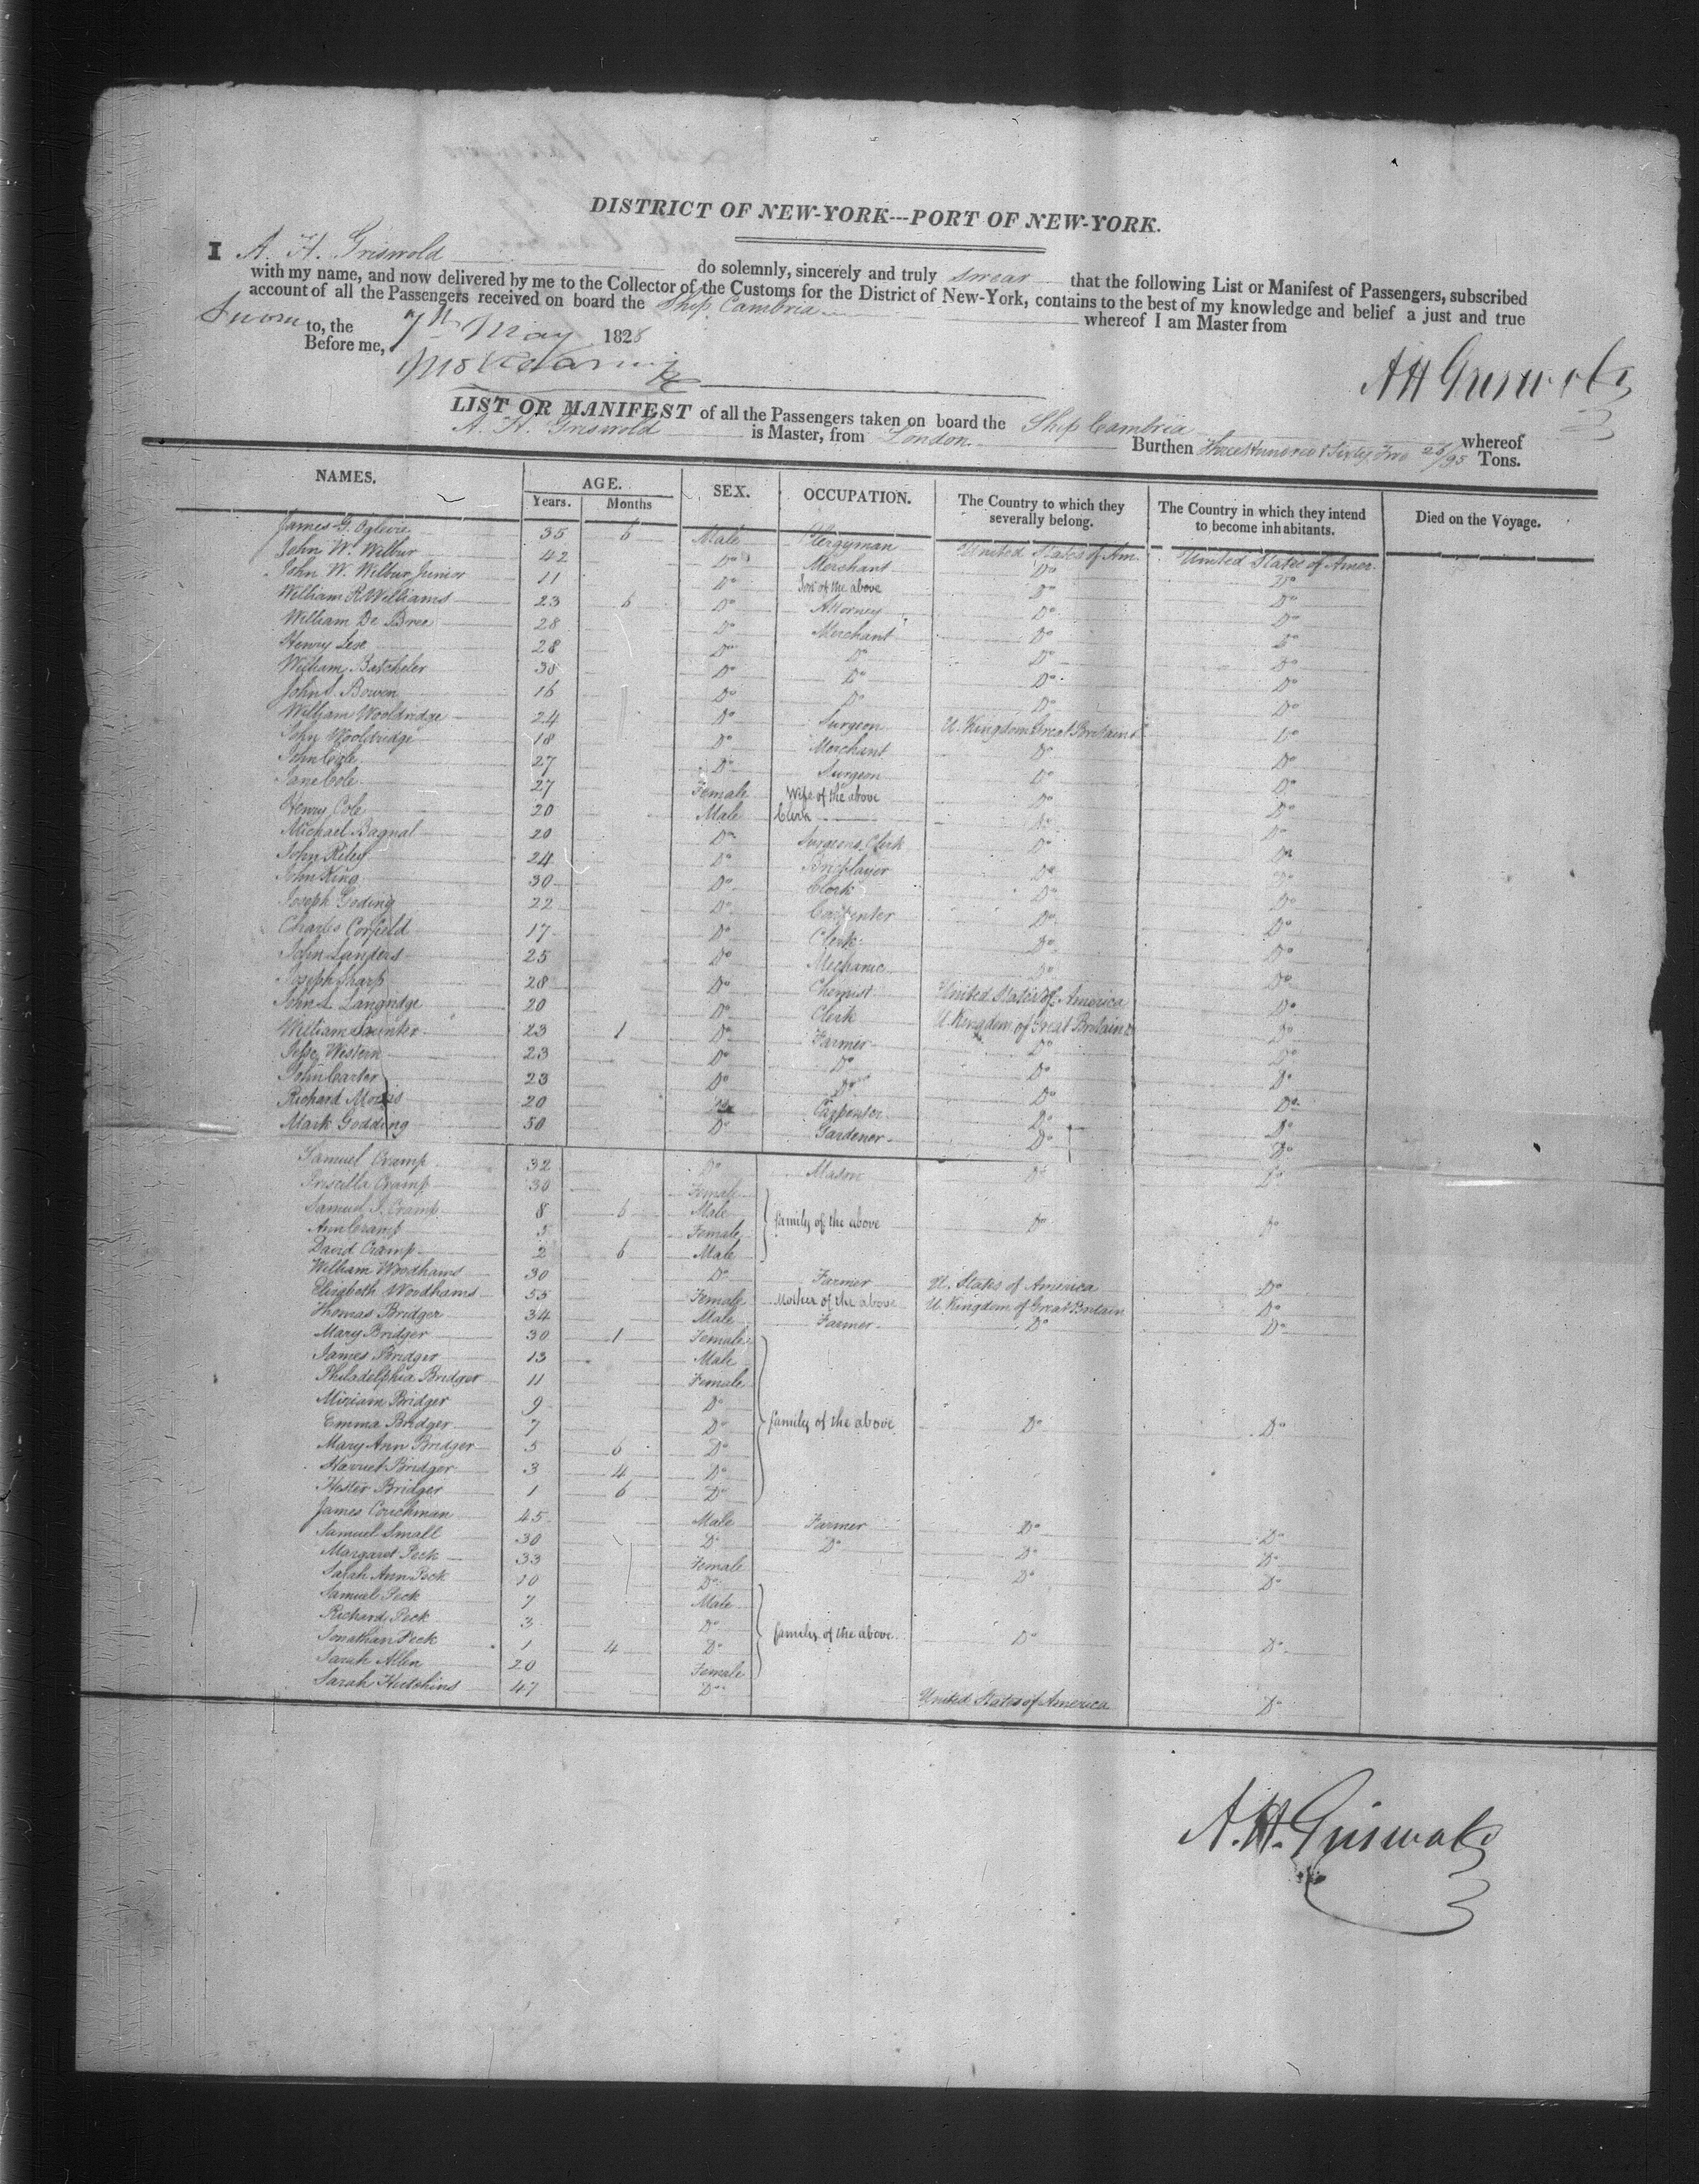 DISTRICT OF NEW-YORK---PORT OF NEW-YORK.
I A. H. Griswold do solemnly, sincerely and truly swear that the following List or Manifest of Passengers, subscribed
with my name, and now delivered by me to the Collector of the Customs for the District of New-York, contains to the best of my knowledge and belief a just and true
account of all the Passengers received on board the Ship Cambria whereof I am Master from
Sworn to, the 7th May 1828
Before me,
A H Griswold
LIST OR MANIFEST of all the Passengers taken on board the Ship Cambria whereof
A. H. Griswold is Master, from London Burthen Three Hundred & Sixty Two 26/95 Tons.
NAMES. AGE. Years. Months SEX. OCCUPATION. The Country to which they severally belong. The Country in which they intend to become inhabitants. Died on the Voyage.
James G. Oglevie 35 6 Male Clergyman United States of Am. United States of Amer.
John W. Wilbur 42 Do Merchant Do Do
John W. Wilbur Junior 11 Do Son of the above Do Do
William R. Williams 23 6 Do Attorney Do Do
William De Bree 28 Do Merchant Do Do
Henry 28 Do Do Do Do
William Batcheler 38 Do Do Do Do
John S. Bowen 16 Do Do Do Do
William Wooldridge 24 Do Surgeon U. Kingdom Great Britain & Do
John Wooldridge 18 Do Merchant Do Do
John Cole 27 Do Surgeon Do Do
Jane Cole 27 Female Wife of the above Do Do
Henry Cole 20 Male Clerk Do Do
Michael Bagnal 20 Do Surgeons Clerk Do Do
John Riley 24 Do Bricklayer Do Do
John King 30 Do Clerk Do Do
Joseph Goding 22 Do Carpenter Do Do
Charles Corfield 17 Do Clerk Do Do
John Sanders 25 Do Mechanic Do Do
Joseph Sharp 28 Do Chemist United States of America Do
John L. Langridge 20 Do Clerk U Kingdom of Great Britain & Do
William 23 1 Do Farmer Do Do
Jesse Western 23 Do Do Do Do
John Carter 23 Do Do Do Do
Richard Morris 20 Do Carpenter Do Do
Mark Godding 50 Do Gardener Do Do
Samuel Cramp 32 Do Mason Do Do
Priscilla Cramp 30 Female
Samuel J. Cramp 8 6 Male family of the above Do Do
Ann Cramp 5 Female
David Cramp 2 6 Male
William Woodhams 30 Do Farmer U. States of America Do
Elizabeth Woodhams 55 Female Mother of the above U. Kingdom of Great Britain Do
Thomas Bridger 34 Male Farmer Do Do
Mary Bridger 30 1 Female
James Bridger 13 Male
Philadelphia Bridger 11 Female
Miriam Bridger 9 Do
Emma Bridger 7 Do family of the above Do Do
Mary Ann Bridger 5 6 Do
Harriet Bridger 3 4 Do
Hester Bridger 1 6 Do
James Couchman 45 Male Farmer Do Do
Samuel Small 30 Do Do Do Do
Margaret Peck 33 Female Do Do
Sarah Ann Peck 10 Do
Samuel Peck 7 Male
Richard Peck 3 Do family of the above Do Do
Jonathan Peck 1 4 Do
Sarah Allen 20 Female
Sarah Hutchins 47 Do United States of America Do
A. H. Griswold